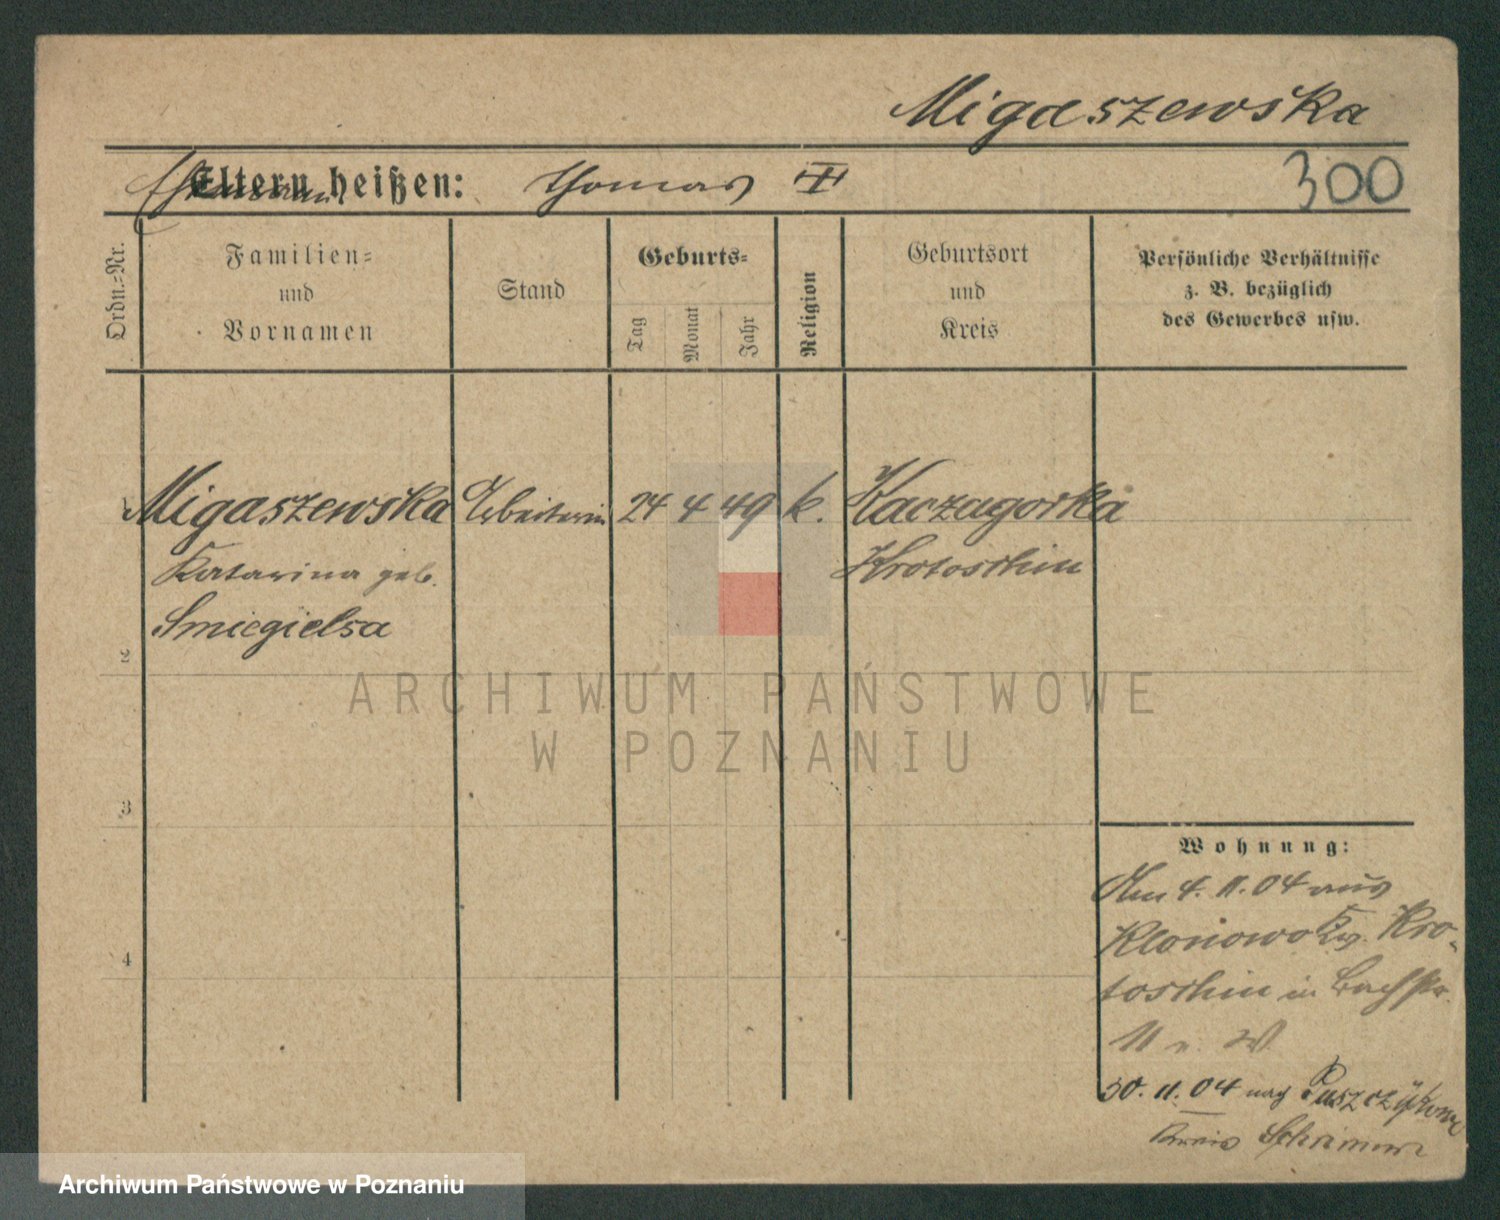 Migaszewska
Eltern heißen: Thomas
300
Ordn.=Nr.
Familien=
und
Vornamen
Stand
Geburts=
Tag
Monat
Jahr
Religion
Geburtsort
und
Kreis
Persönliche Verhältnisse
z. B. bezüglich
des Gewerbes usw.
1 Migaszewska Arbeiterin 24 4 49 k. Kaczagorka
Katarina geb. Krotoschin
Smiegielsa
2
ARCHIWUM PAŃSTWOWE
W POZNANIU
3
Wohnung:
Am 4. 11. 04 aus
Klonowo Kr. Kro-
4
toschin in Bachstr.
11 n. W
30. 11. 04 nach
Kreis Schrimm
Archiwum Państwowe w Poznaniu